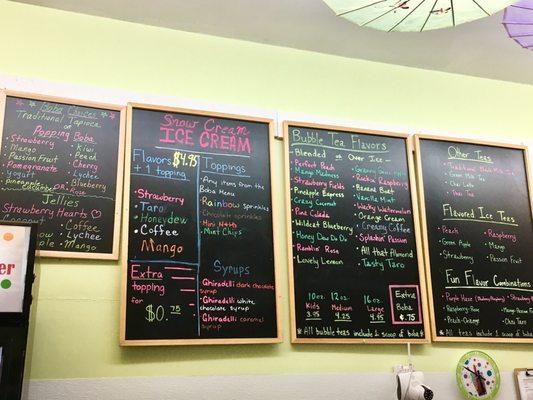 Boba Choices
Traditional Tapioca
or
Popping Boba
Strawberry
Mango
Passion Fruit
Pomegranate
Yogurt
Pineapple
Kiwi
Peach
Cherry
Lychee
Blueberry
or Rose
Jellies
Strawberry Hearts
Coconut
Mango
Strawberry
Coffee
Lychee
Passion Fruit
er
Snow Cream
ICE CREAM
Flavors $4.95
+ 1 topping
Strawberry
Taro
Honeydew
Coffee
Mango
Extra
topping
for
$0.75
Toppings
Any items from the
Boba Menu
Rainbow sprinkles
Chocolate sprinkles
Mint Chips
Syrups
Ghiradelli dark chocolate
syrup
Ghiradelli white
chocolate syrup
Ghiradelli caramel
syrup
Bubble Tea Flavors
Blended or Over Ice
Perfect Peach
Mango Madness
Strawberry Fields
Pineapple Express
Crazy Coconut
Pina Colada
Wildcat Blueberry
Honey Dew Do Do
Ramblin' Rose
Lovely Lemon
Rockin Raspberry
Banana Boat
Vanilla Mint
Wacky Watermelon
Orange Cream
Creamy Coffee
Splashin' Passion
All that Almond
Tasty Taro
10oz Kids 3.95
12oz Medium 4.25
16oz Large 4.95
Extra
Boba
$.75
All bubble teas include 1 scoop of boba
Other Teas
Green Milk Tea
Thai Tea
Chai Latte
Flavored Iced Teas
Peach
Green Apple
Strawberry
Raspberry
Mango
Passion Fruit
Fun Flavor Combinations
Purple Haze
Raspberry-Rose
Peach-Orange
Strawberry
Pineapple-Orange
Chai Taro
All teas include 1 scoop of